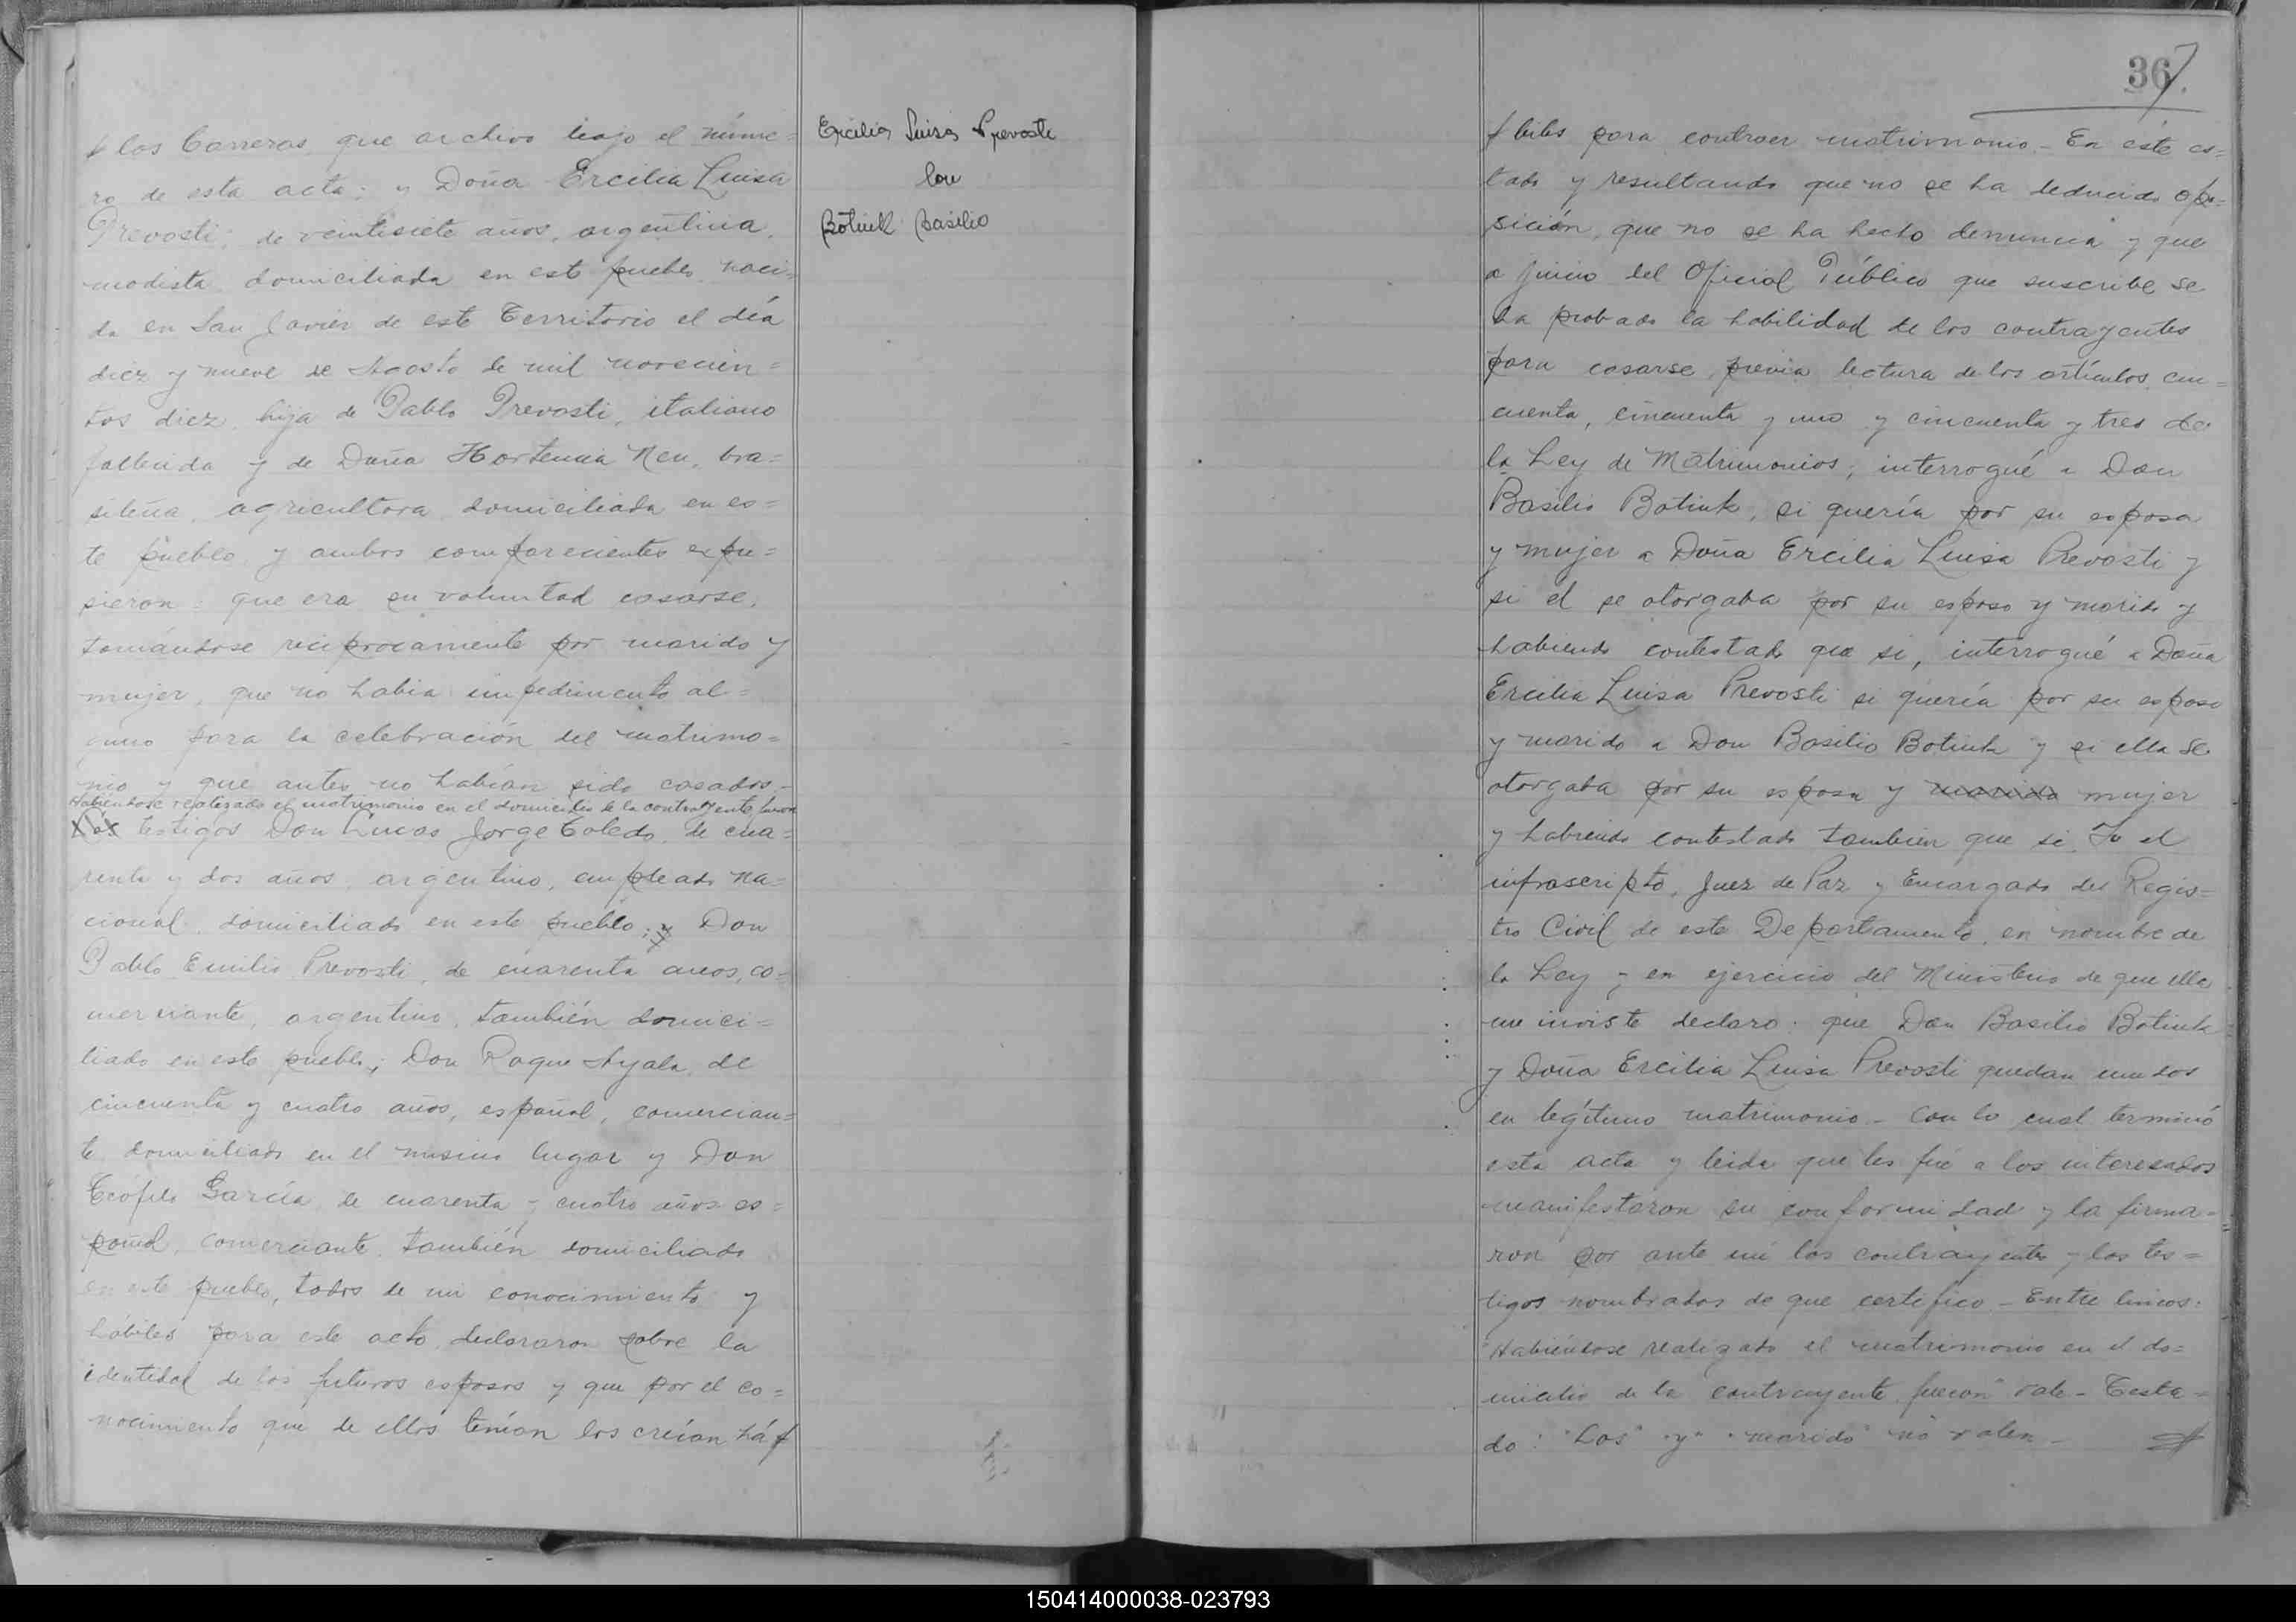 las Carreras que archivo bajo el núme=
ro de esta acta; y Doña Ercilia Luisa
Prevosti, de veintisiete años, argentina,
modista domiciliada en este pueblo, naci=
da en San Javier de este Territorio el día
diez y nueve de Agosto de mil novecien=
tos diez, hija de Pablo Prevosti, italiano
fallecido y de Doña Hortencia Neu, bra=
sileña, agricultora domiciliada en es=
te pueblo, y ambos comparecientes expu=
sieron: que era su voluntad casarse,
tomándose recíprocamente por marido y
mujer, que no había impedimento al=
guno para la celebración del matrimo=
nio y que antes no habían sido casados.-
Habiendose realizado el matrimonio en el domicilio de la contrayente fueron
Los testigos Don Lucas Jorge Toledo, de cua=
renta y dos años, argentino, empleado na=
cional, domiciliado en este pueblo; y Don
Pablo Emilio Prevosti, de cuarenta años, co=
merciante, argentino, también domici=
liado en este pueblo; Don Roque Ayala, de
cincuenta y cuatro años, español, comercian=
te domiciliado en el mismo lugar y Don
Teófilo García, de cuarenta y cuatro años es=
pañol, comerciante, también domiciliado
en este pueblo, todos de mi conocimiento y
hábiles para este acto, declararon sobre la
identidad de los futuros esposos y que por el co=
nocimiento que de ellos tenían los creían há
Ercilia Luisa Prevosti
Con
Botiuk Basilio
367.
biles para contraer matrimonio.- En este es=
tado y resultando que no se ha deducido opo=
sición, que no se ha hecho denuncia y que
a juicio del Oficial Público que suscribe se
ha probado la habilidad de los contrayentes
para casarse, previa lectura de los artículos cin=
cuenta, cincuenta y uno y cincuenta y tres de
la Ley de Matrimonios; interrogué a Don
Basilio Botiuk, si quería por su esposa
y mujer a Doña Ercilia Luisa Prevosti y
si el se otorgaba por su esposo y marido y
habiendo contestado que si, interrogué a Doña
Ercilia Luisa Prevosti si quería por su esposo
y marido a Don Basilio Botiuk y si ella se
otorgaba por su esposa y marido mujer
y habiendo contestado tambien que si. Yo el
infrascripto, Juez de Paz y Encargado del Regis=
tro Civil de este Departamento, en nombre de
la Ley y en ejercicio del Ministerio de que ella
me inviste declaro: que Don Basilio Botiuk
y Doña Ercilia Luisa Prevosti quedan unidos
en legítimo matrimonio.- Con lo cual terminó
esta acta y leída que les fué a los interesados
manifestaron su conformidad y la firma=
ron por ante mi los contrayentes y los tes=
tigos nombrados de que certifico.- Entre lineas:
"Habiéndose realizado el matrimonio en el do=
micilio de la contrayente fueron" vale.- Testa=
do: "Los" "y" "marido" no valen.-
150414000038-023793